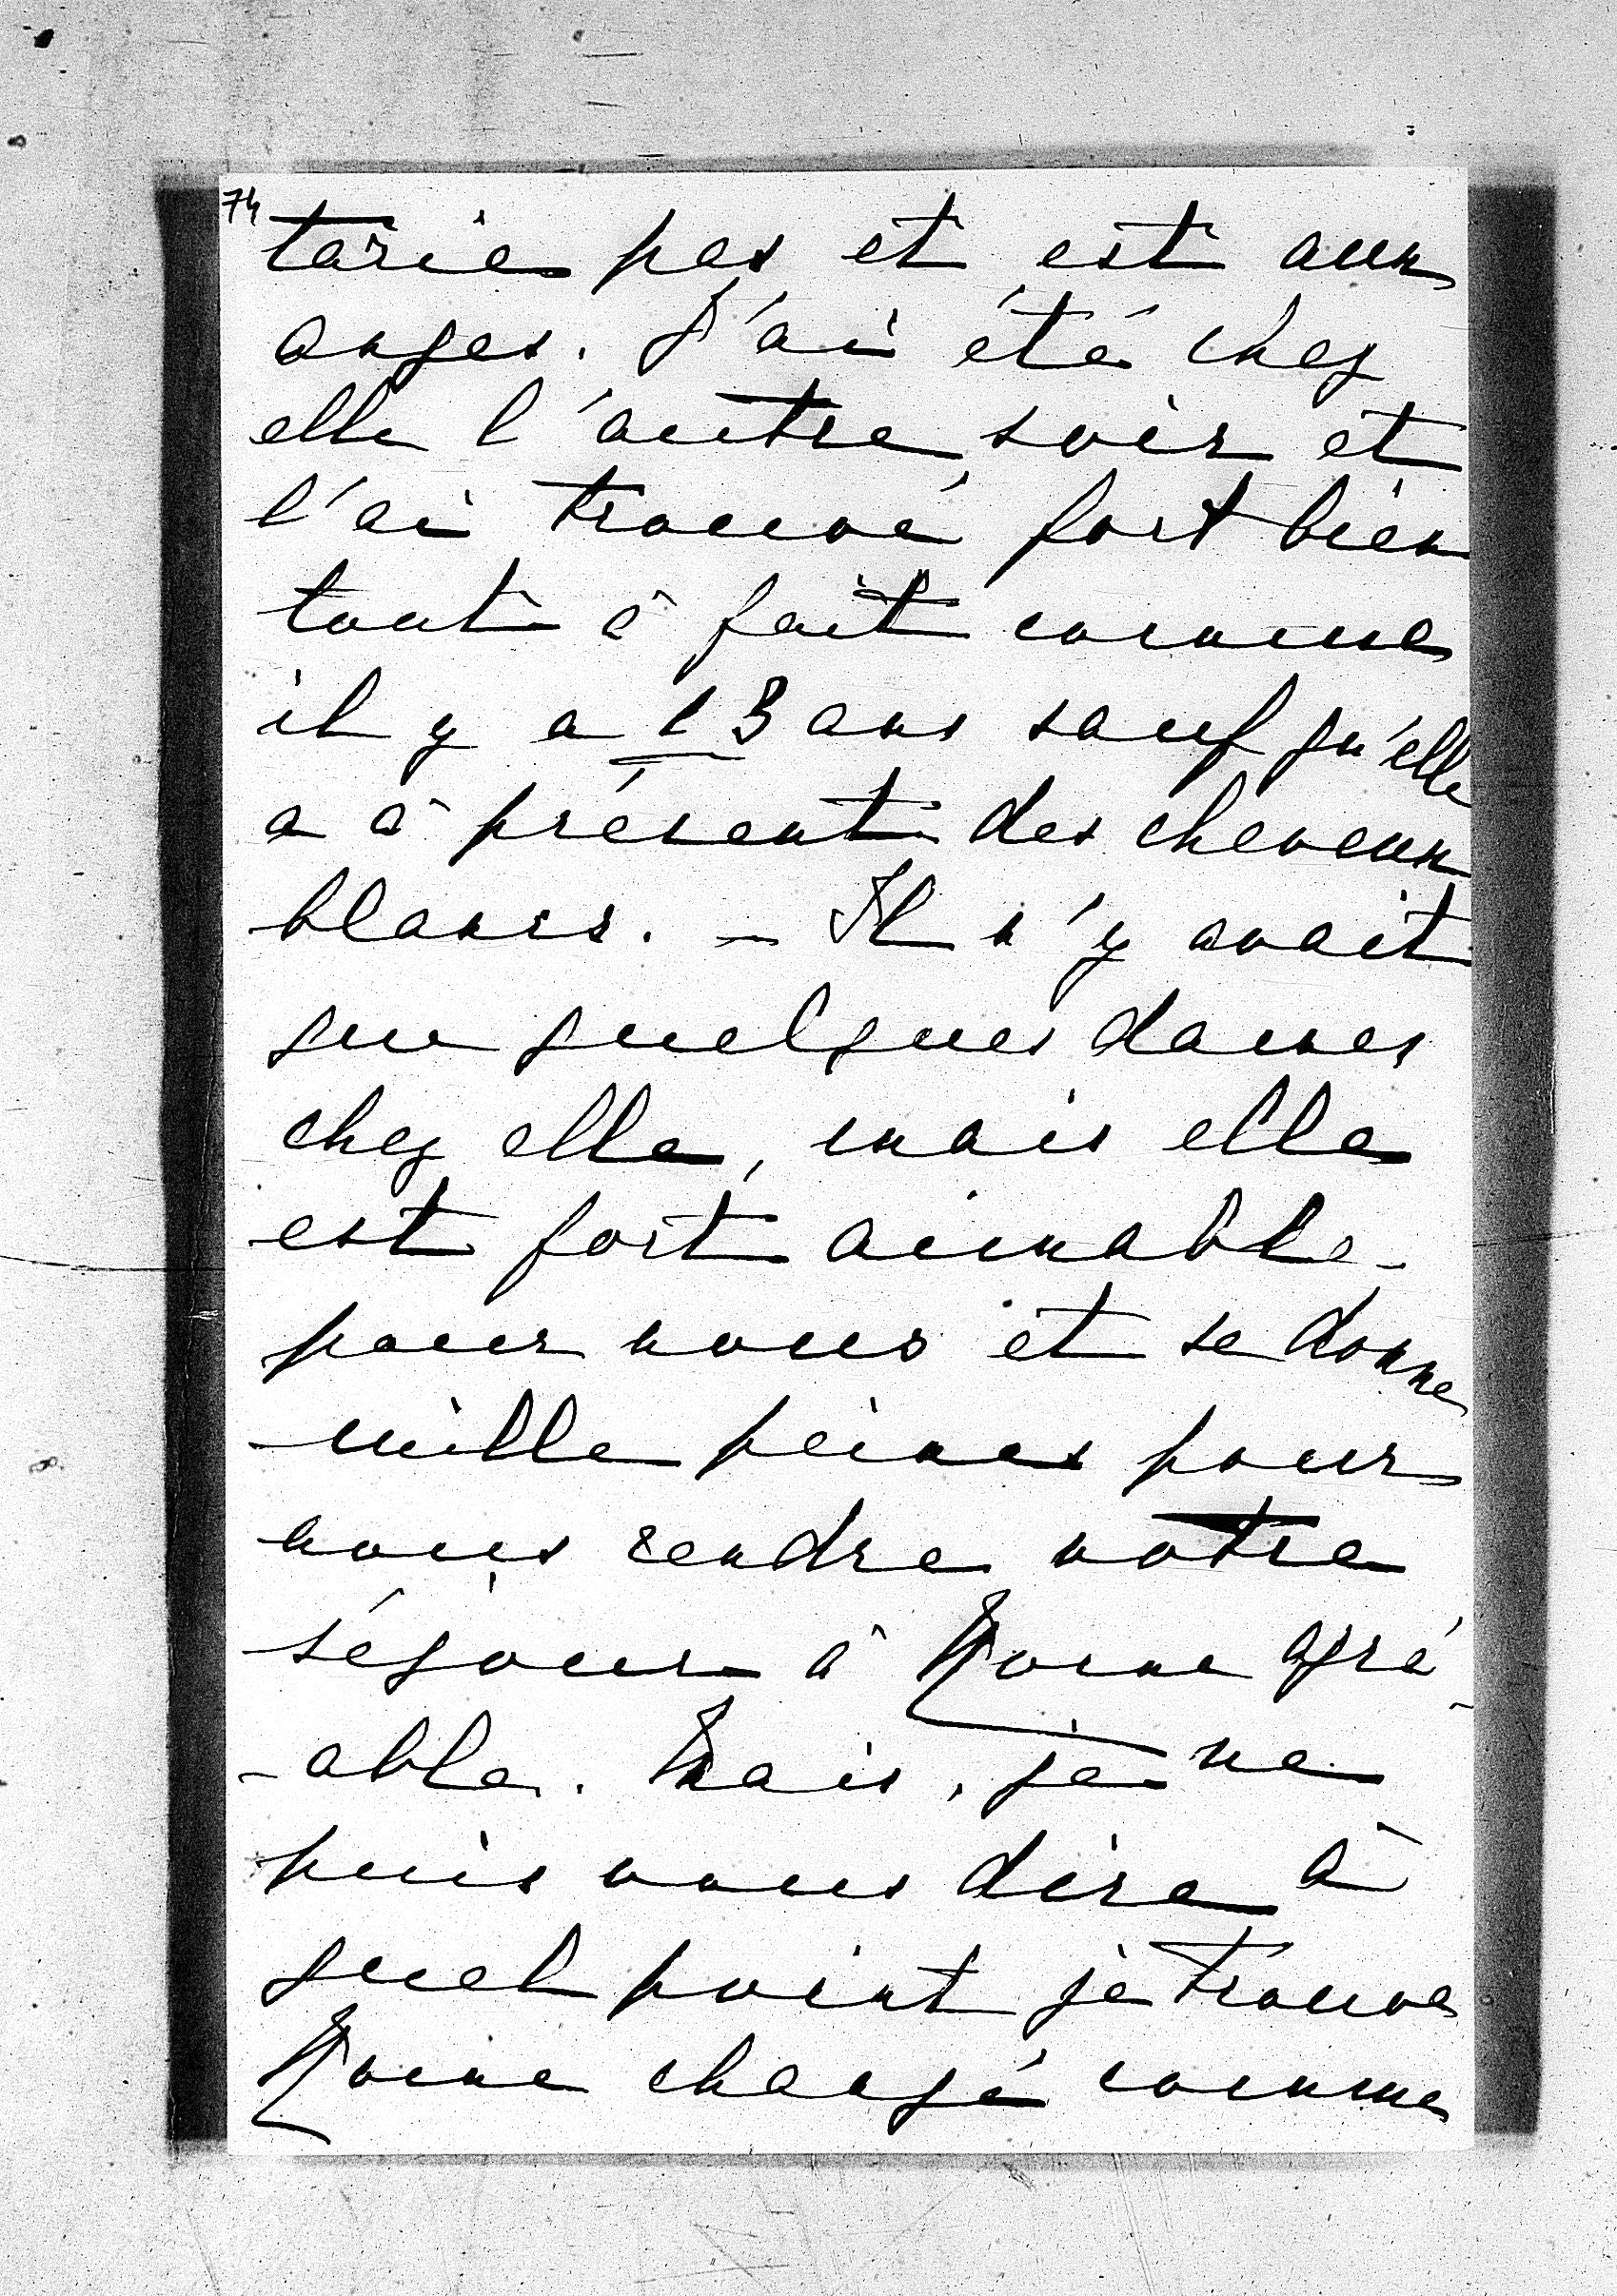 74
tarie pas et est aux
anges. J'ai été chez
elle l'autre soir et
l'ai trouvé fort bien
tout à fait comme
il y a 13 ans sauf qu'elle
a à présent des cheveux
blancs. – Il n'y avait
que quelques dames
chez elle, mais elle
est fort aimable
pour nous et se donne
mille peines pour
nous rendre notre
séjour à Rome agré-
-able. Mais, je ne
puis vous dire à
quel point je trouve
Rome changé comme